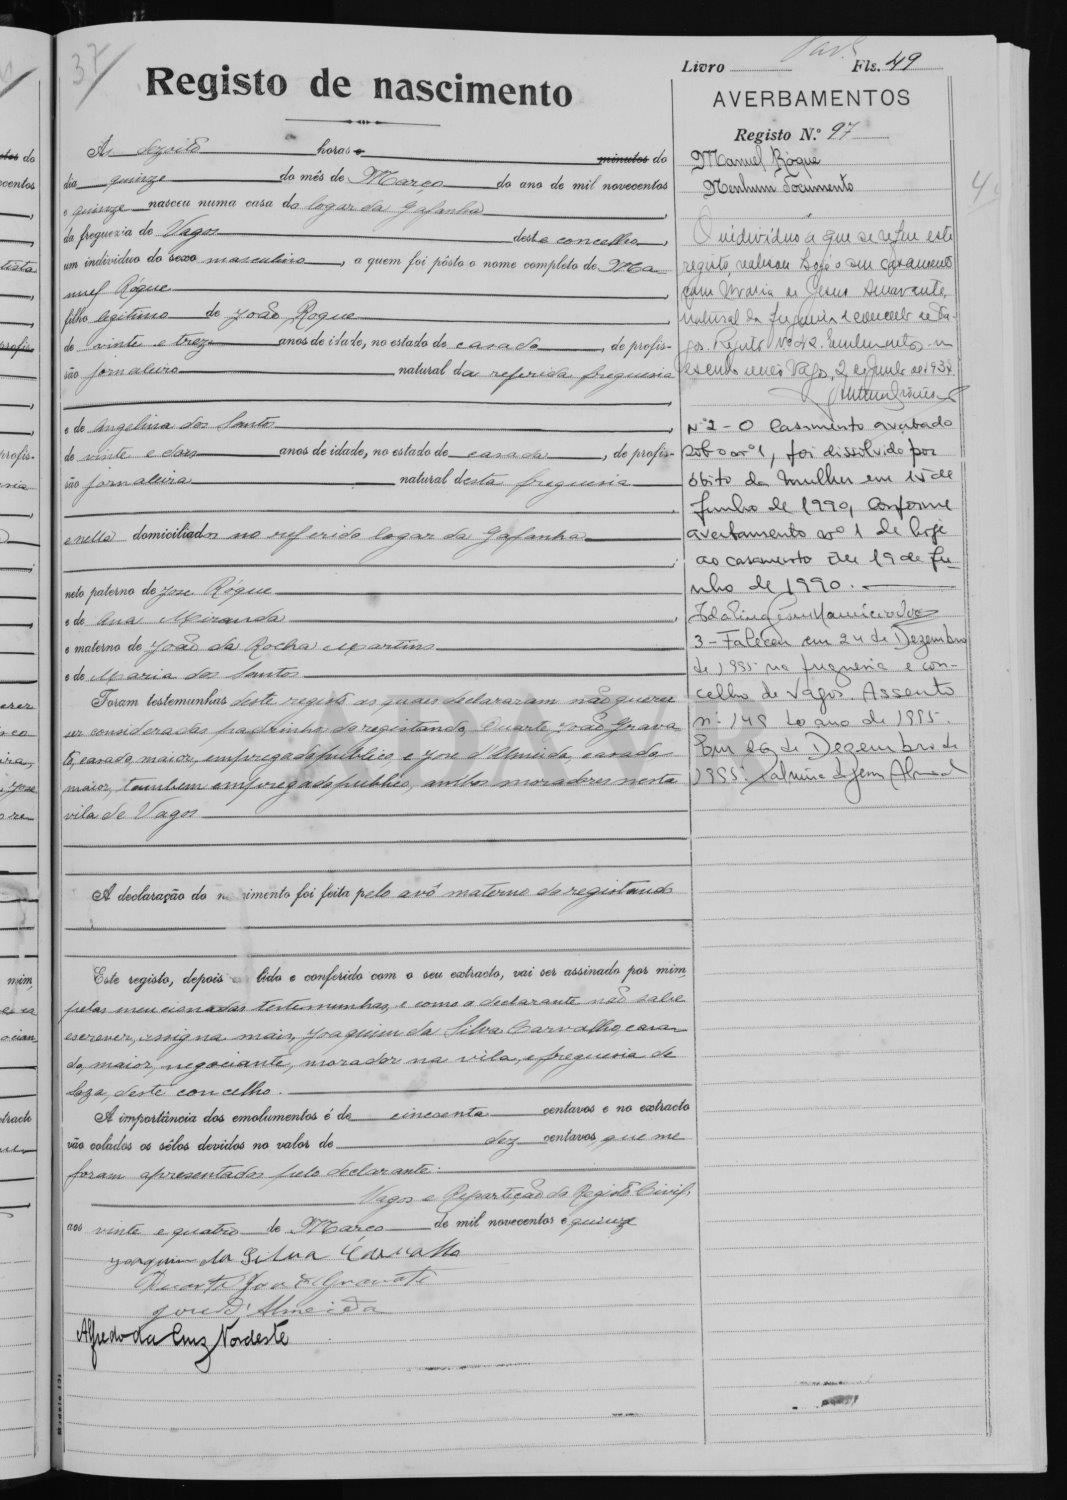 37
Registo de nascimento
Ás dezoito horas e minutos do
dia quinze do mês de Março do ano de mil novecentos
e quinze nasceu numa casa do logar da Gafanha,
da freguezia de Vagos deste concelho,
um individuo do sexo masculino, a quem foi pôsto o nome completo de Ma-
nuel Róque,
filho legitimo de João Roque,
de vinte e treze anos de idade, no estado de casado, de profis-
são jornaleiro natural da referida freguesia
e de Angelina dos Santos,
de vinte e dois anos de idade, no estado de casada, de profis-
são jornaleira natural desta freguesia
e nella domiciliados no referido logar da Gafanha
neto paterno de José Róque
e de Ana Miranda,
e materno de João da Rocha Martins
e de Maria dos Santos
Foram testemunhas deste registo as quaes declararam não querer
ser consideradas padrinhos do registando, Duarte João Grava-
to, casado, maior, empregado publico e José d'Almeida, casado
maior, tambem empregado publico, ambos moradores nesta
vila de Vagos
A declaração do nascimento foi feita pelo avô materno do registando
Este registo, depois de lido e conferido com o seu extracto, vai ser assinado por mim,
pelas mencionadas testemunhas, e como a declarante não sabe
escrever, assigna mais, Joaquim da Silva Carvalho, casa-
do, maior, negociante, morador na vila, e freguesia de
Soza, deste concelho.
A importância dos emolumentos é de cincoenta centavos e no extracto
vão colados os sêlos devidos no valor de dez centavos, que me
foram apresentados pelo declarante.
Vagos e Repartição do Registo Civil,
aos vinte e quatro de Março de mil novecentos e quinze
Joaquim da Silva Carvalho
Duarte João Gravato
José d'Almeida
Alfredo da Cruz Nordeste
Livro Fls. 49
AVERBAMENTOS
Registo N.º 97
Manuel Róque
Nenhum documento
O individuo a que se refere este
registo, realisou hoje o seu casamento
com Maria de Jesus
natural da freguesia e concelho de Va-
gos. Registo Nº 42.
Vagos, 2 de Junho de 193
Nº 2 - O Casamento averbado
sob o nº 1, foi dissolvido por
óbito da mulher em 15 de
Junho de 1990, conforme
averbamento nº 1 de hoje
ao casamento. Em 19 de Ju-
nho de 1990.
3 - Faleceu em 24 de Dezembro
de 1995 na freguesia e con-
celho de Vagos. Assento
nº 148 do ano de 1995.
Em 26 de Dezembro de
1995.